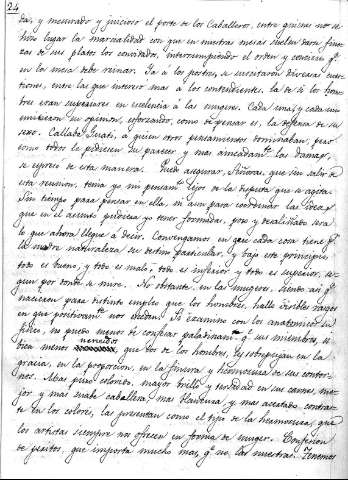 24
da, y mesurado y juicioso el porte de los Caballeros, entre quienes no se
hizo lugar la marcialidad con que en nuestras mesas suelen darse fine-
zas de sus platos los convidados, interrumpiendo el orden y concierto qᵉ
en la mesa debe reinar. Ya á los postres, se suscitaron diversas cues-
tiones, entre las que interesó mas á los contendientes, la de si los hom-
bres eran superiores en excelencia á las mugeres. Cada una y cada uno
su opinion, esforzando, como de pensar es, la defensa de su
sexo. Callaba á quien otros pensamientos dominaban, pero
como todos le pidiesen su parecer y mas ahincadamᵗᵉ las damas,
se espresó de esta manera. Puedo asegurar, Señoras, que sin salir de
esta reunion, tenia yo mi pensamᵗᵒ lejos de la disputa que se agita.
Sin tiempo para pensar en ella, ni aun para coordinar las ideas
que en el asunto pudiera yo tener formadas, poco y desaliñado será
lo que ahora llegue á decir. Convengamos en que cada cosa tiene pʳ
la madre naturaleza su destino particular, y bajo este principio,
todo es bueno, y todo es malo, todo es inferior y todo es superior, se-
gun por donde se mire. No obstante, en las mugeres, siendo así qᵉ
nacieron para distinto empleo que los hombres, hallo visibles rasgos
en que positivamᵗᵉ nos esceden. Si examino con los anatómicos su
fisico, no puedo menos de confesar paladinamᵗᵉ qᵉ sus miembros, si
bien menos que los de los hombres, les sobrepujan en la
gracia, en la proporcion, en la finura y hermosura de sus contor-
nos. Mas fino colorido, mayor brillo y tersidad en sus carnes, me-
jor y mas suave caballera, mas blandura, y mas acertado contras-
te en los colores, las presentan como el tipo de la hermosura, que
los artistas siempre nos ofrecen en forma de muger. Confesion
de peritos, que importa mucho mas qᵉ no las nuestras. Tenemos